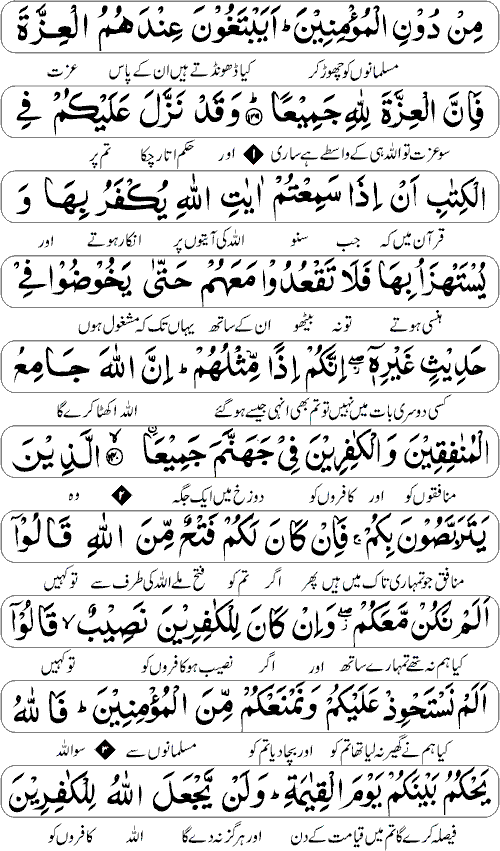 مِنْ دُوْنِ الْمُؤْمِنِيْنَ ؕ اَيَبْتَغُوْنَ عِنْدَهُمُ الْعِزَّةَ
مسلمانوں کو چھوڑ کر کیا ڈھونڈتے ہیں ان کے پاس عزت
فَاِنَّ الْعِزَّةَ لِلّٰهِ جَمِيْعًا ؕ ۱۳۹ وَ قَدْ نَزَّلَ عَلَيْكُمْ فِی
سو عزت تو اللہ ہی کے واسطے ہے ساری ۱ اور حکم اتار چکا تم پر
الْكِتٰبِ اَنْ اِذَا سَمِعْتُمْ اٰيٰتِ اللّٰهِ يُكْفَرُ بِهَا وَ
قرآن میں کہ جب سنو اللہ کی آیتوں پر انکار ہوتے اور
يُسْتَهْزَاُ بِهَا فَلَا تَقْعُدُوْا مَعَهُمْ حَتّٰى يَخُوْضُوْا فِیْ
ہنسی ہوتے تو نہ بیٹھو ان کے ساتھ یہاں تک کہ مشغول ہوں
حَدِيْثٍ غَيْرِهٖۤ ۖ اِنَّكُمْ اِذًا مِّثْلُهُمْ ؕ اِنَّ اللّٰهَ جَامِعُ
کسی دوسری بات میں نہیں تو تم بھی انہی جیسے ہو گئے اللہ اکھٹا کرے گا
الْمُنٰفِقِيْنَ وَ الْكٰفِرِيْنَ فِیْ جَهَنَّمَ جَمِيْعًا ۱۴۰ الَّذِيْنَ
منافقوں کو اور کافروں کو دوزخ میں ایک جگہ ۲ وہ
يَتَرَبَّصُوْنَ بِكُمْ ۚ فَاِنْ كَانَ لَكُمْ فَتْحٌ مِّنَ اللّٰهِ قَالُوْۤا
منافق جو تمہاری تاک میں ہیں پھر اگر تم کو فتح ملے اللہ کی طرف سے تو کہیں
اَلَمْ نَكُنْ مَّعَكُمْ ۖ وَ اِنْ كَانَ لِلْكٰفِرِيْنَ نَصِيْبٌ ۙ قَالُوْۤا
کیا ہم نہ تھے تمہارے ساتھ اور اگر نصیب ہو کافروں کو تو کہیں
اَلَمْ نَسْتَحْوِذْ عَلَيْكُمْ وَ نَمْنَعْكُمْ مِّنَ الْمُؤْمِنِيْنَ ؕ فَاللّٰهُ
کیا ہم نے گھیر نہ لیا تھا تم کو اور بچا دیا تم کو مسلمانوں سے ۳ سو اللہ
يَحْكُمُ بَيْنَكُمْ يَوْمَ الْقِيٰمَةِ ؕ وَ لَنْ يَّجْعَلَ اللّٰهُ لِلْكٰفِرِيْنَ
فیصلہ کرے گا تم میں قیامت کے دن اور ہرگز نہ دے گا اللہ کافروں کو